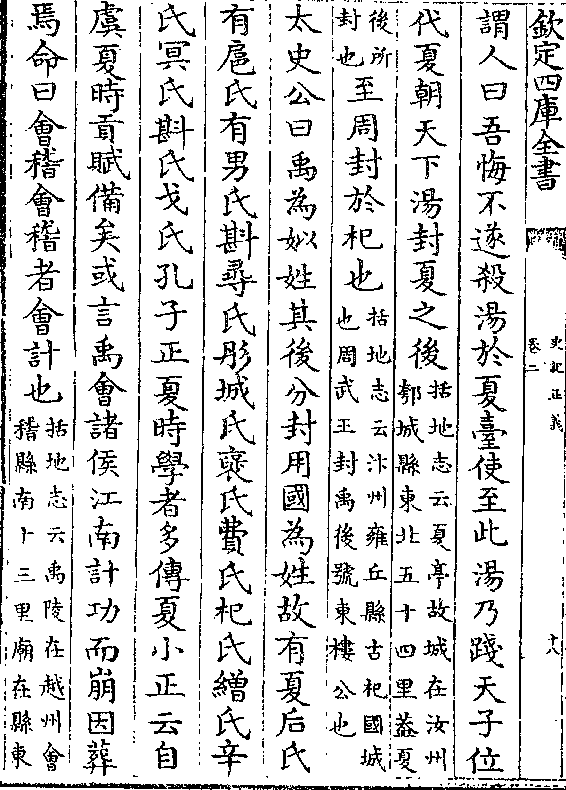 欽定四庫全書
史記正義
卷二
十八
謂人曰吾悔不遂殺湯於夏臺使至此湯乃踐天子位
代夏朝天下湯封夏之後
括地志云夏亭故城在汝州
郟城縣東北五十四里蓋夏
後所
封也
至周封於杞也
括地志云汴州雍丘縣古杞國城
也周武王封禹後號東樓公也
太史公曰禹為姒姓其後分封用國為姓故有夏后氏
有扈氏有男氏斟尋氏彤城氏褒氏費氏杞氏繒氏辛
氏冥氏斟氏戈氏孔子正夏時學者多傳夏小正云自
虞夏時貢賦備矣或言禹會諸侯江南計功而崩因葬
焉命曰會稽會稽者會計也
括地志云禹陵在越州會
稽縣南十三里廟在縣東